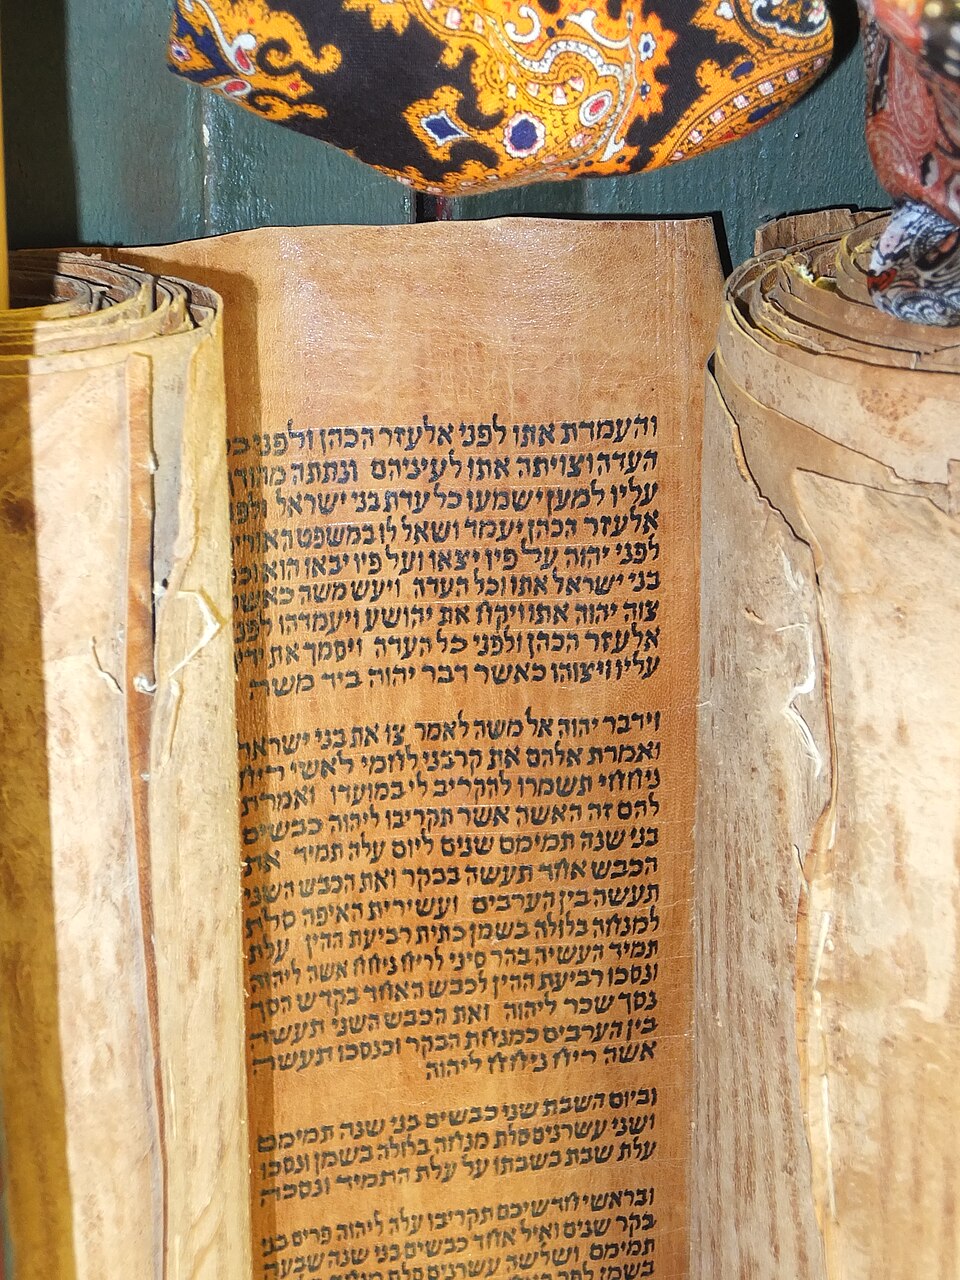 והעמדת אתו לפני אלעזר הכהן ולפני
העדה וצויתה אתו לעיניהם ונתתה
עליו למען ישמעו כל עדת בני ישראל
אלעזר הכהן יעמד ושאל לו במשפט
לפני יהוה על פיו יצאו ועל פיו יבאו הוא
בני ישראל אתו וכל העדה ויעש משה כאשר
צוה יהוה אתו ויקח את יהושע ויעמדהו
אלעזר הכהן ולפני כל העדה ויסמך את
עליו ויצוהו כאשר דבר יהוה ביד משה
וידבר יהוה אל משה לאמר צו את בני ישראל
ואמרת אלהם את קרבני לחמי לאשי ריח
ניחחי תשמרו להקריב לי במועדו ואמרת
להם זה האשה אשר תקריבו ליהוה כבשים
בני שנה תמימם שנים ליום עלה תמיד את
הכבש אחד תעשה בבקר ואת הכבש השני
תעשה בין הערבים ועשירית האיפה סלת
למנחה בלולה בשמן כתית רביעת ההין עלת
תמיד העשיה בהר סיני לריח ניחח אשה ליהוה
ונסכו רביעת ההין לכבש האחד בקדש הסך
נסך שכר ליהוה ואת הכבש השני תעשה
בין הערבים כמנחת הבקר וכנסכו תעשה
אשה ריח ניחח ליהוה
וביום השבת שני כבשים בני שנה תמימם
ושני עשרנים סלת מנחה בלולה בשמן ונסכו
עלת שבת בשבתו על עלת התמיד ונסכה
ובראשי חדשיכם תקריבו עלה ליהוה פרים בני
בקר שנים ואיל אחד כבשים בני שנה שבעה
תמימם ושלשה עשרנים סלת מנחה
בשמן לפר